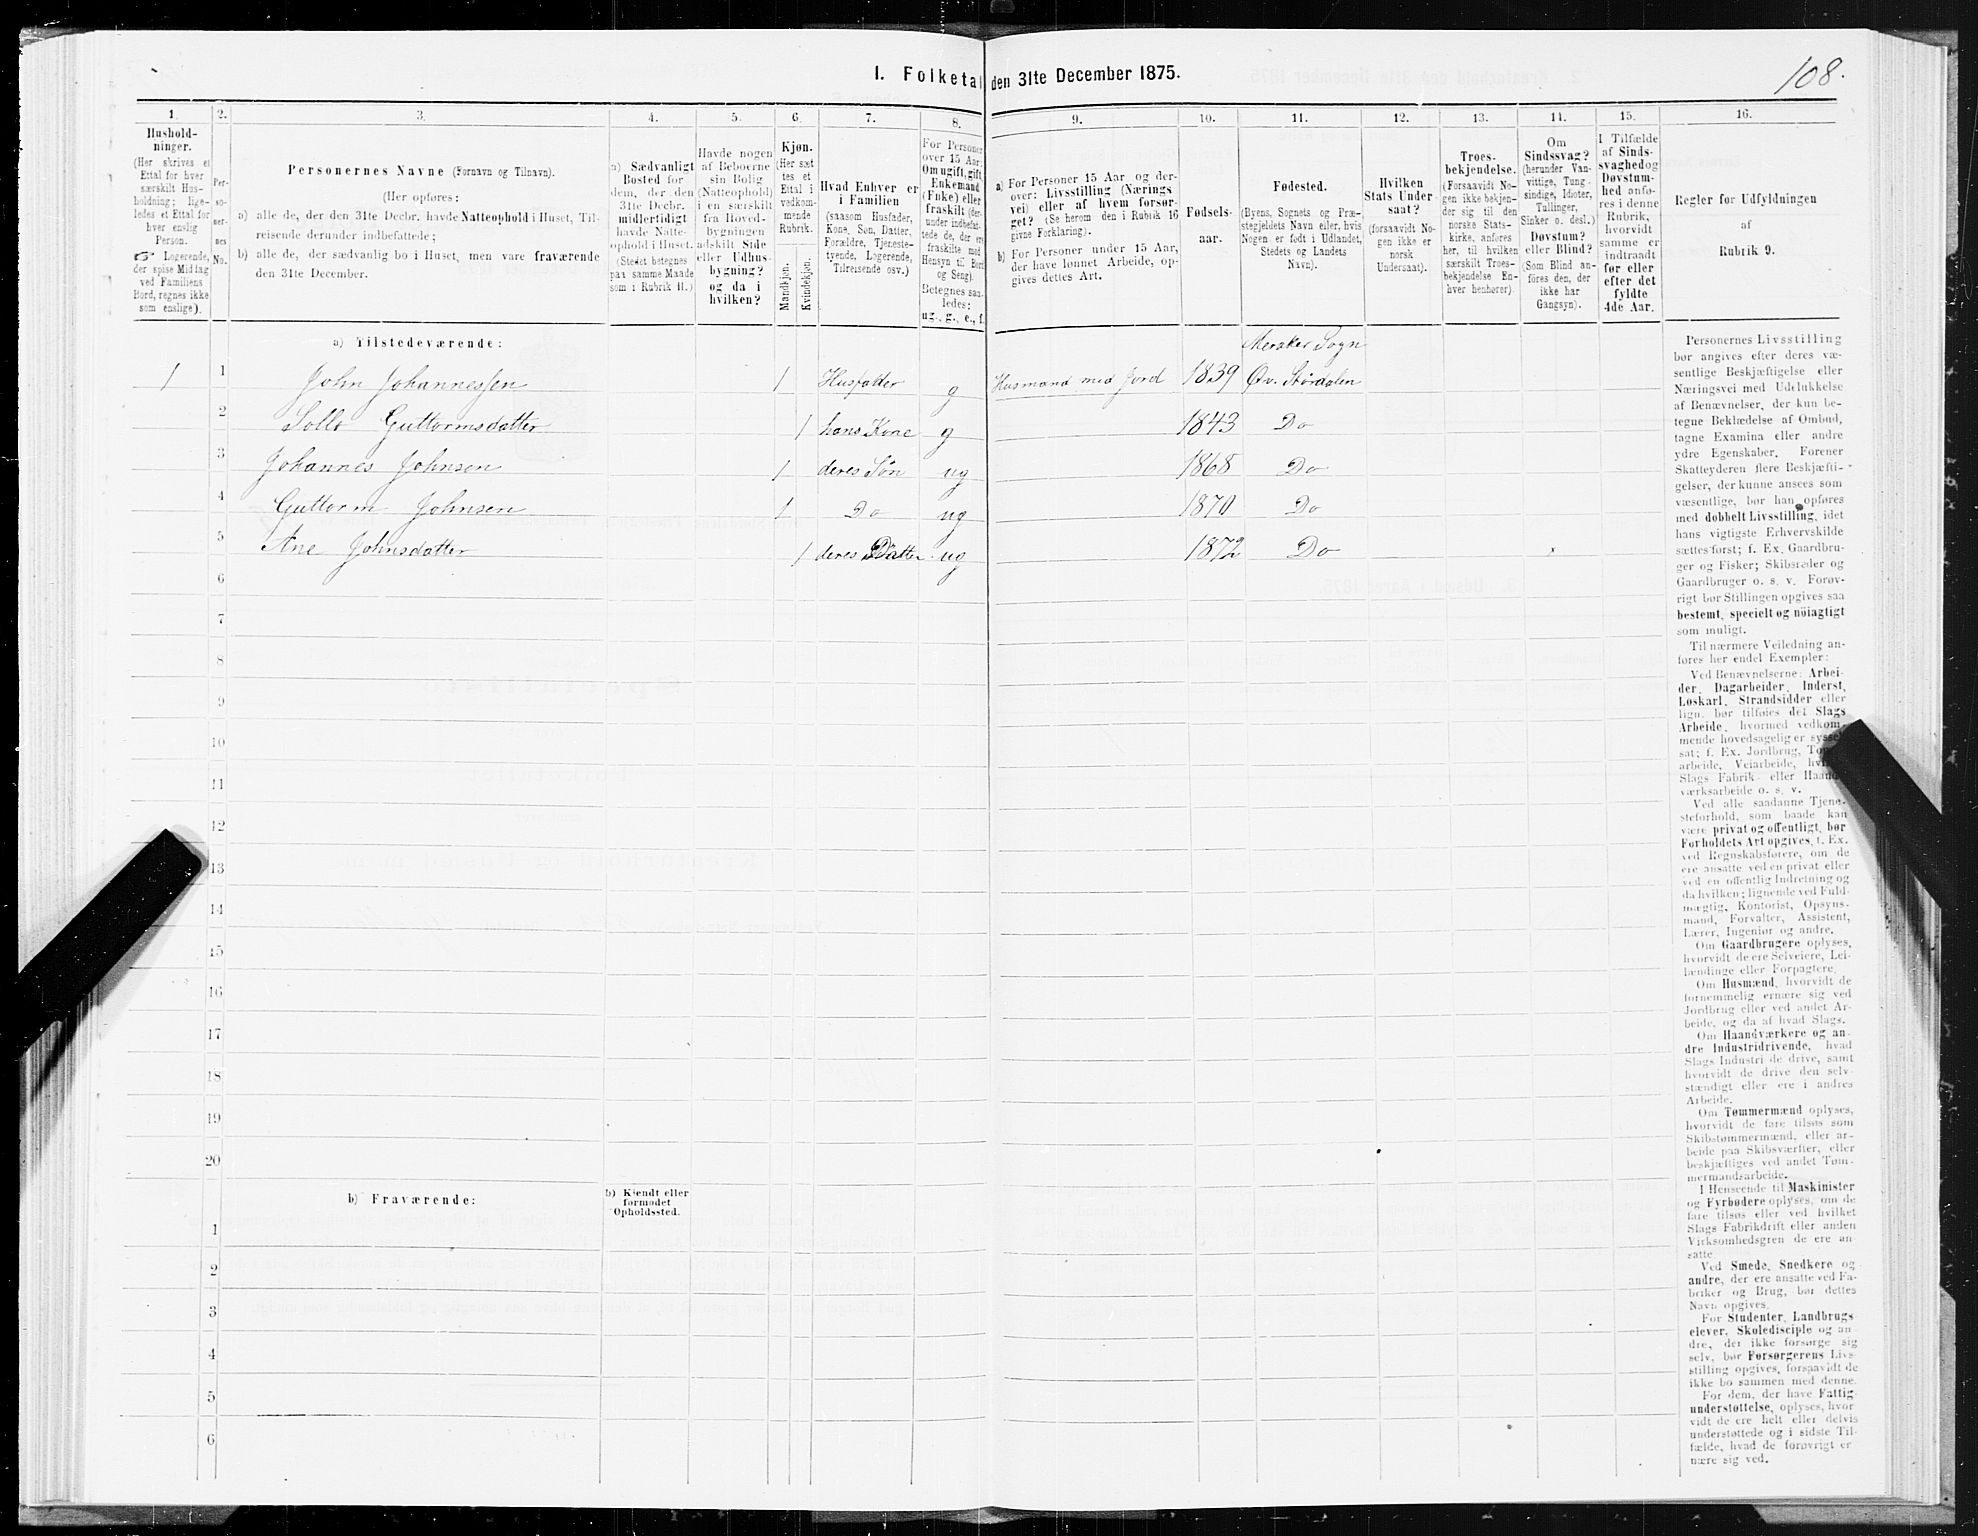 108.
I. Folketal den 31te December 1875.
1.
Hushold-
ninger.
(Her skrives et
Ettal for hver
særskilt Hus-
holdning; lige-
ledes et Ettal for
hver enslig
Person.
☞ Logerende,
der spise Middag
ved Familiens
Bord, regnes ikke
som enslige).
2.
Per-
so-
ner-
nes
No.
3.
Personernes Navne (Fornavn og Tilnavn).
(Her opføres:
a) alle de, der den 31te Decbr. havde Natteophold i Huset, Til-
reisende derunder indbefattede;
b) alle de, der sædvanlig bo i Huset, men vare fraværende
den 31te December.
4.
a) Sædvanligt
Bosted for
dem, der den
31te Decbr.
midlertidigt
havde Natte-
ophold i Huset.
(Stedet betegnes
paa samme Maade
som i Rubrik 11.)
5.
Havde nogen
af Beboerne
sin Bolig
(Natteophold)
i en særskilt
fra Hoved-
bygningen
adskilt Side
eller Udhus-
bygning?
og da i
hvilken?
6.
Kjøn.
(Her sæt
tes et
Ettal i
vedkom-
mende
Rubrik.
Mandkjøn.
Kvindekjøn.
7.
Hvad Enhver er
i Familien
(saasom Husfader,
Kone, Søn, Datter,
Forældre, Tjeneste-
tyende, Logerende,
Tilreisende osv.)
8.
For Personer
over 15 Aar:
Om ugift, gift,
Enkemand
(Enke) eller
fraskilt (der-
under indbefat-
tede de, der ere
fraskilte med
Hensyn til Bord
og Seng).
Betegnes saa-
ledes:
ug., g., e., f.
9.
a) For Personer 15 Aar og der-
over: Livsstilling (Nærings
vei) eller af hvem forsør-
get? (Se herom den i Rubrik 16
givne Forklaring).
b) For Personer under 15 Aar,
der have lønnet Arbeide, op-
gives dettes Art.
10.
Fødsels-
aar.
11.
Fødested.
(Byens, Sognets og Præ-
stegjeldets Navn eller, hvis
Nogen er født i Udlandet,
Stedets og Landets
Navn).
12.
Hvilken
Stats Under-
saat?
(forsaavidt No-
gen ikke er
norsk
Undersaat).
13.
Troes-
bekjendelse.
(Forsaavidt No-
gen ikke bekjen-
der sig til den
norske Stats-
kirke, anføres
her, til hvilken
særskilt Troes-
bekjendelse En-
hver henhører).
14.
Om
Sindssvag?
(herunder Van-
vittige, Tung-
sindige, Idioter,
Tullinger,
Sinker o. desl.)
Døvstum?
eller Blind?
(Som Blind an-
føres den, der
ikke har
Gangsyn).
15.
I Tilfælde
af Sinds-
svaghed og
Døvstum-
hed anfø-
res i denne
Rubrik,
hvorvidt
samme er
indtraadt
før eller
efter det
fyldte
4de Aar.
16.
Regler for Udfyldningen
af
Rubrik 9.
a) Tilstedeværende:
Meraker Sogn
1 1 John Johannessen 1 Husfader g Husmand med Jord 1839 Øv. Størdalen
2 Guttormsdatter 1 hans Kone g 1843 Do
3 Johannes Johnsen 1 deres Søn ug 1868 Do
4 Guttorm Johnsen 1 Do ug 1870 Do
5 Ane Johnsdatter 1 deres Datter ug 1872 Do
6
7
8
9
10
11
12
13
14
15
16
17
18
19
20
b) Fraværende:
b) Kjendt eller
formodet
Opholdssted.
1
2
3
4
5
6
Personernes Livsstilling
bør angives efter deres væ-
sentlige Beskjæftigelse eller
Næringsvei med Udelukkelse
af Benævnelser, der kun be-
tegne Beklædelse af Ombud,
tagne Examina eller andre
ydre Egenskaber. Forener
Skatteyderen flere Beskjæfti-
gelser, der kunne ansees som
væsentlige, bør han opføres
med dobbelt Livsstilling, idet
hans vigtigste Erhvervskilde
sættes først; f. Ex. Gaardbru-
ger og Fisker; Skibsreder og
Gaardbruger o. s. v. Forøv-
rigt bør Stillingen opgives saa
bestemt, specielt og nöiagtigt
som muligt.
Til nærmere Veiledning an-
føres her endel Exempler:
Ved Benævnelserne: Arbei-
der, Dagarbeider, Inderst,
Løskarl, Strandsidder eller
lign. bør tilføies det Slags
Arbeide, hvormed vedkom-
mende hovedsagelig er syssel-
sat; f. Ex. Jordbrug,
arbeide, Veiarbeide,
Slags Fabrik- eller
værksarbeide o. s. v.
Ved alle saadanne Tjene-
steforhold, som baade kan
være privat og offentligt, bør
Forholdets Art opgives, f. Ex.
ved Regnskabsførere, om de
ere ansatte ved en privat eller
ved en offentlig Indretning og
da hvilken; lignende ved Fuld-
mægtig, Kontorist, Opsyns-
mand, Forvalter, Assistent,
Lærer, Ingeniør og andre.
Om Gaardbrugere oplyses,
hvorvidt de ere Selveiere, Lei-
lændinge eller Forpagtere.
Om Husmænd, hvorvidt de
fornemmelig ernære sig ved
Jordbrug eller ved andet Ar-
beide, og da af hvad Slags.
Om Haandværkere og an-
dre Industridrivende, hvad
Slags Industri de drive, samt
hvorvidt de drive den selv-
stændigt eller ere i andres
Arbeide.
Om Tømmermænd oplyses,
hvorvidt de fare tilsøs som
Skibstømmermænd, eller ar-
beide paa Skibsværfter, eller
beskjæftiges ved andet Tøm-
mermandsarbeide.
I Henseende til Maskinister
og Fyrbødere oplyses, om de
fare tilsøs eller ved hvilket
Slags Fabrikdrift eller anden
Virksomhedsgren de ere an-
satte.
Ved Smede, Snedkere og
andre, der ere ansatte ved Fa-
briker og Brug, bør dettes
Navn opgives.
For Studenter, Landbrugs-
elever, Skoledisciple og an-
dre, der ikke forsørge sig
selv, bør Forsørgerens Livs-
stilling opgives, forsaavidt de
ikke bo sammen med denne.
For dem, der have Fattig-
understøttelse, oplyses, hvor-
vidt de ere helt eller delvis
understøttede og i sidste Til-
fælde, hvad de forøvrigt er-
nære sig ved.